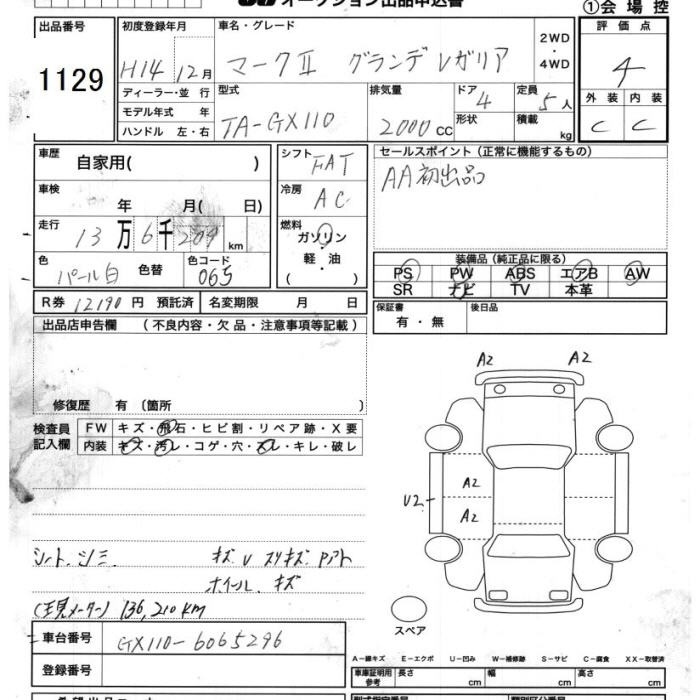 オークション出品申込書
①会場控
出品番号
1129
初度登録年月
H14 12月
ディーラー・並行
モデル年式 年
ハンドル 左・右
車名・グレード
マークⅡ グランデ レガリア
2WD
・
4WD
型式
TA-GX110
排気量
2000 CC
ドア
4
形状
定員
5人
積載
kg
評価点
4
外装 内装
C C
車歴
自家用( )
車検
年 月( 日)
走行
13万6千209km
色
パール白
色替
色コード
065
シフト
FAT
冷房
AC
燃料
ガソリン・
軽・油
( )
R券 12190円 預託済
名変期限 月 日
セールスポイント(正常に機能するもの)
AA初出品
装備品(純正品に限る)
PS PW ABS エアB AW
SR ナビ TV 本革
保証書
有・無
後日品
出品店申告欄 (不良内容・欠品・注意事項等記載)
修復歴 有〔箇所 〕
検査員
記入欄
FW キズ・飛石・ヒビ割・リペア跡・X要
内装 キズ・汚レ・コゲ・穴・スレ・キレ・破レ
A2 A2
A2
U2
A2
シート、シミ
キズ U スリキズ Pアト
ホイール、キズ
(現メーター) 136,210KM
スペア
車台番号
GX110-6065296
登録番号
A-線キズ E-エクボ U-凹み W-補修跡 S-サビ C-腐食 XX-取替済
車庫証明用
参考
長さ cm 幅 cm 高さ cm